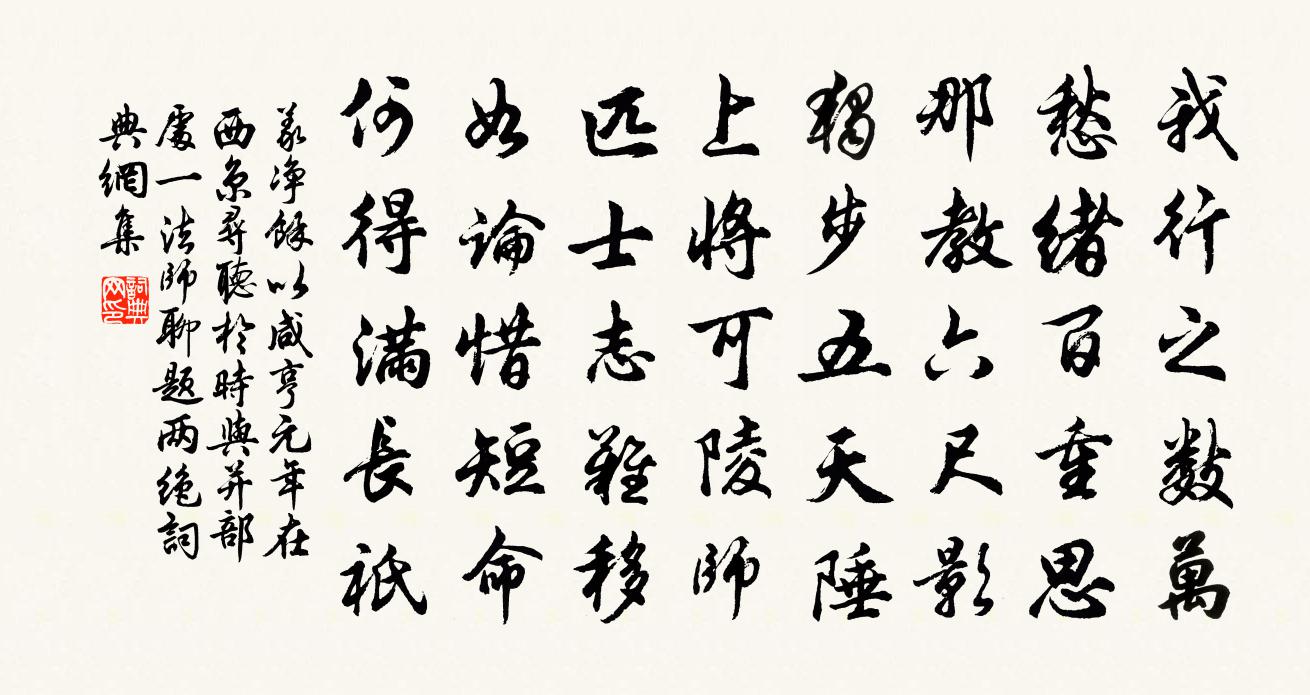 我行之數萬
愁緒百重思
那教六尺影
獨步五天陲
上將可陵師
匹士志難移
如論惜短命
何得滿長祇
義淨餘以咸亨元年在
西京尋聽於時與并部
處一法師聊題兩絕詞
典網集
詞典网印